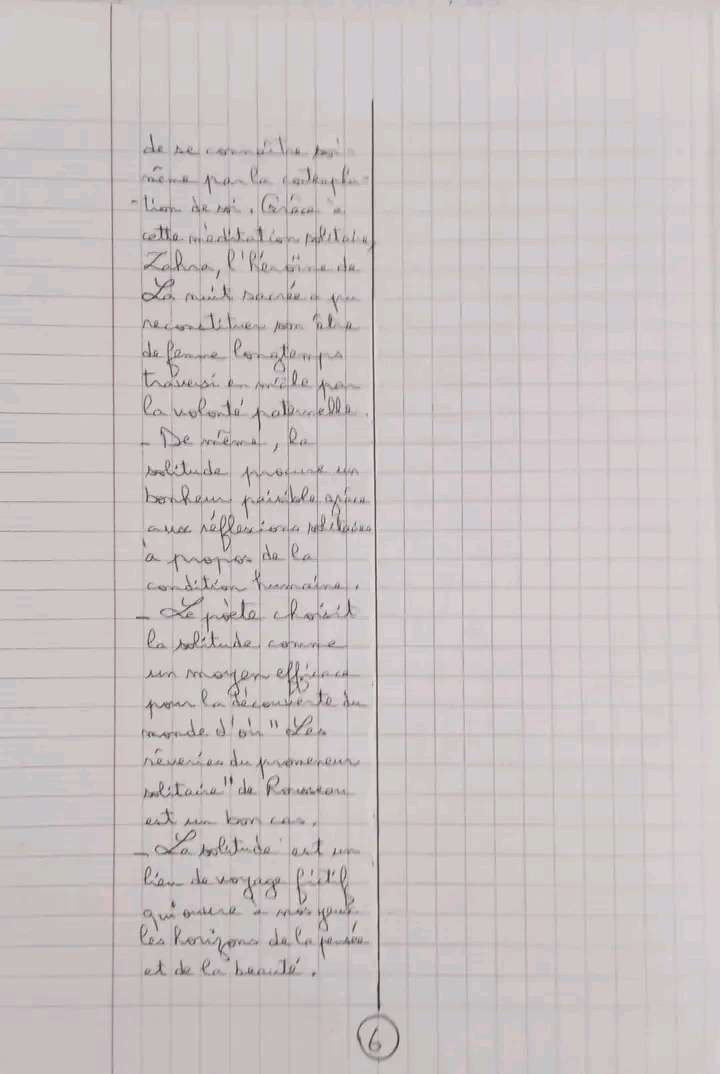 de se connaître soi
même par la contempla
-tion de soi. Grâce à
cette méditation solitaire,
Zahra, l'héroïne de
La nuit sacrée a pu
reconstituer son être
de femme longtemps
traversi en mâle par
la volonté paternelle.
- De même, la
solitude procure un
bonheur paisible grâce
aux réflexions solitaires
à propos de la
condition humaine.
- Le poète choisit
la solitude comme
un moyen efficace
pour la découverte du
monde d'où "Les
rêveries du promeneur
solitaire" de Rousseau
est un bon cas.
- La solitude est un
lieu de voyage fictif
qui ouvre à nos yeux
les horizons de la pensée
et de la beauté.
6